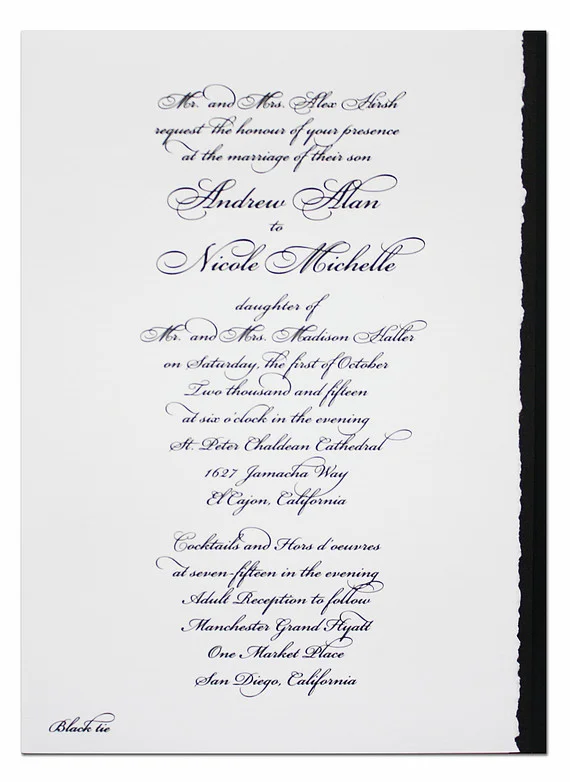 Mr. and Mrs. Alex Hirsh
request the honour of your presence
at the marriage of their son
Andrew Alan
to
Nicole Michelle
daughter of
Mr. and Mrs. Madison Haller
on Saturday, the first of October
Two thousand and fifteen
at six o'clock in the evening
St. Peter Chaldean Cathedral
1627 Jamacha Way
El Cajon, California
Cocktails and Hors d'oeuvres
at seven-fifteen in the evening
Adult Reception to follow
Manchester Grand Hyatt
One Market Place
San Diego, California
Black tie